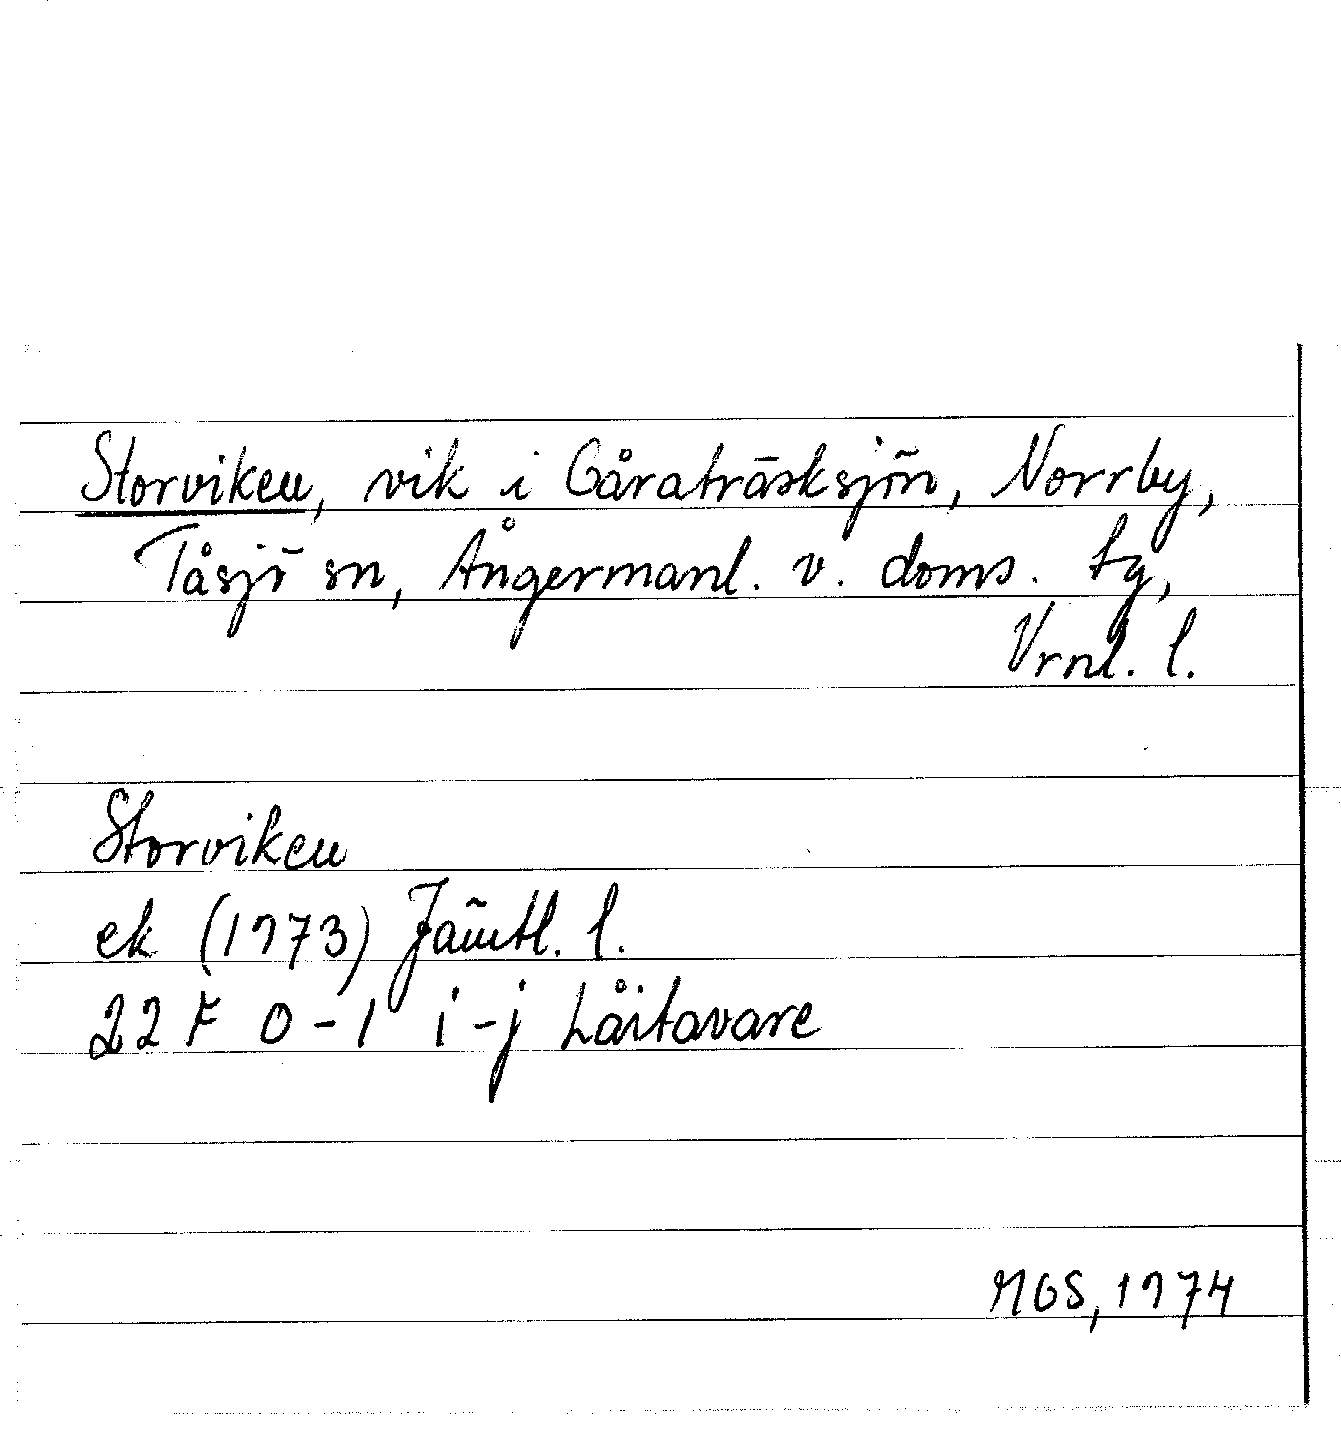 Storviken, vik i Gåraträsksjön, Norrby,
Tåsjö sn, Ångermanl. v. doms. tg,
Vrnl. l.
Storviken
ek (1973) Jämtl. l.
22 F 0-1 i-j Låitavare
MGS, 1974